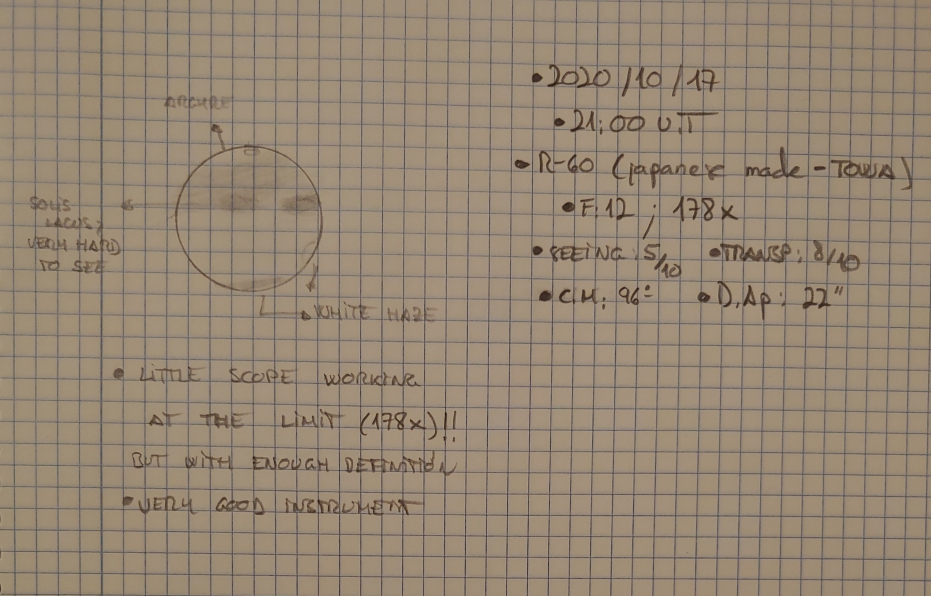 • 2020/10/17
• 21:00 U.T
• R-60 (japanese made - TOWA)
• F:12 ; 178x
• SEEING: 5/10 • TRANSP: 8/10
• C.M: 96° • D.Ap: 22"
SOLIS
LACUS;
VERY HARD
TO SEE
WHITE HAZE
• LITTLE SCOPE WORKING
AT THE LIMIT (178x)!!
BUT WITH ENOUGH DEFINITION
• VERY GOOD INSTRUMENT